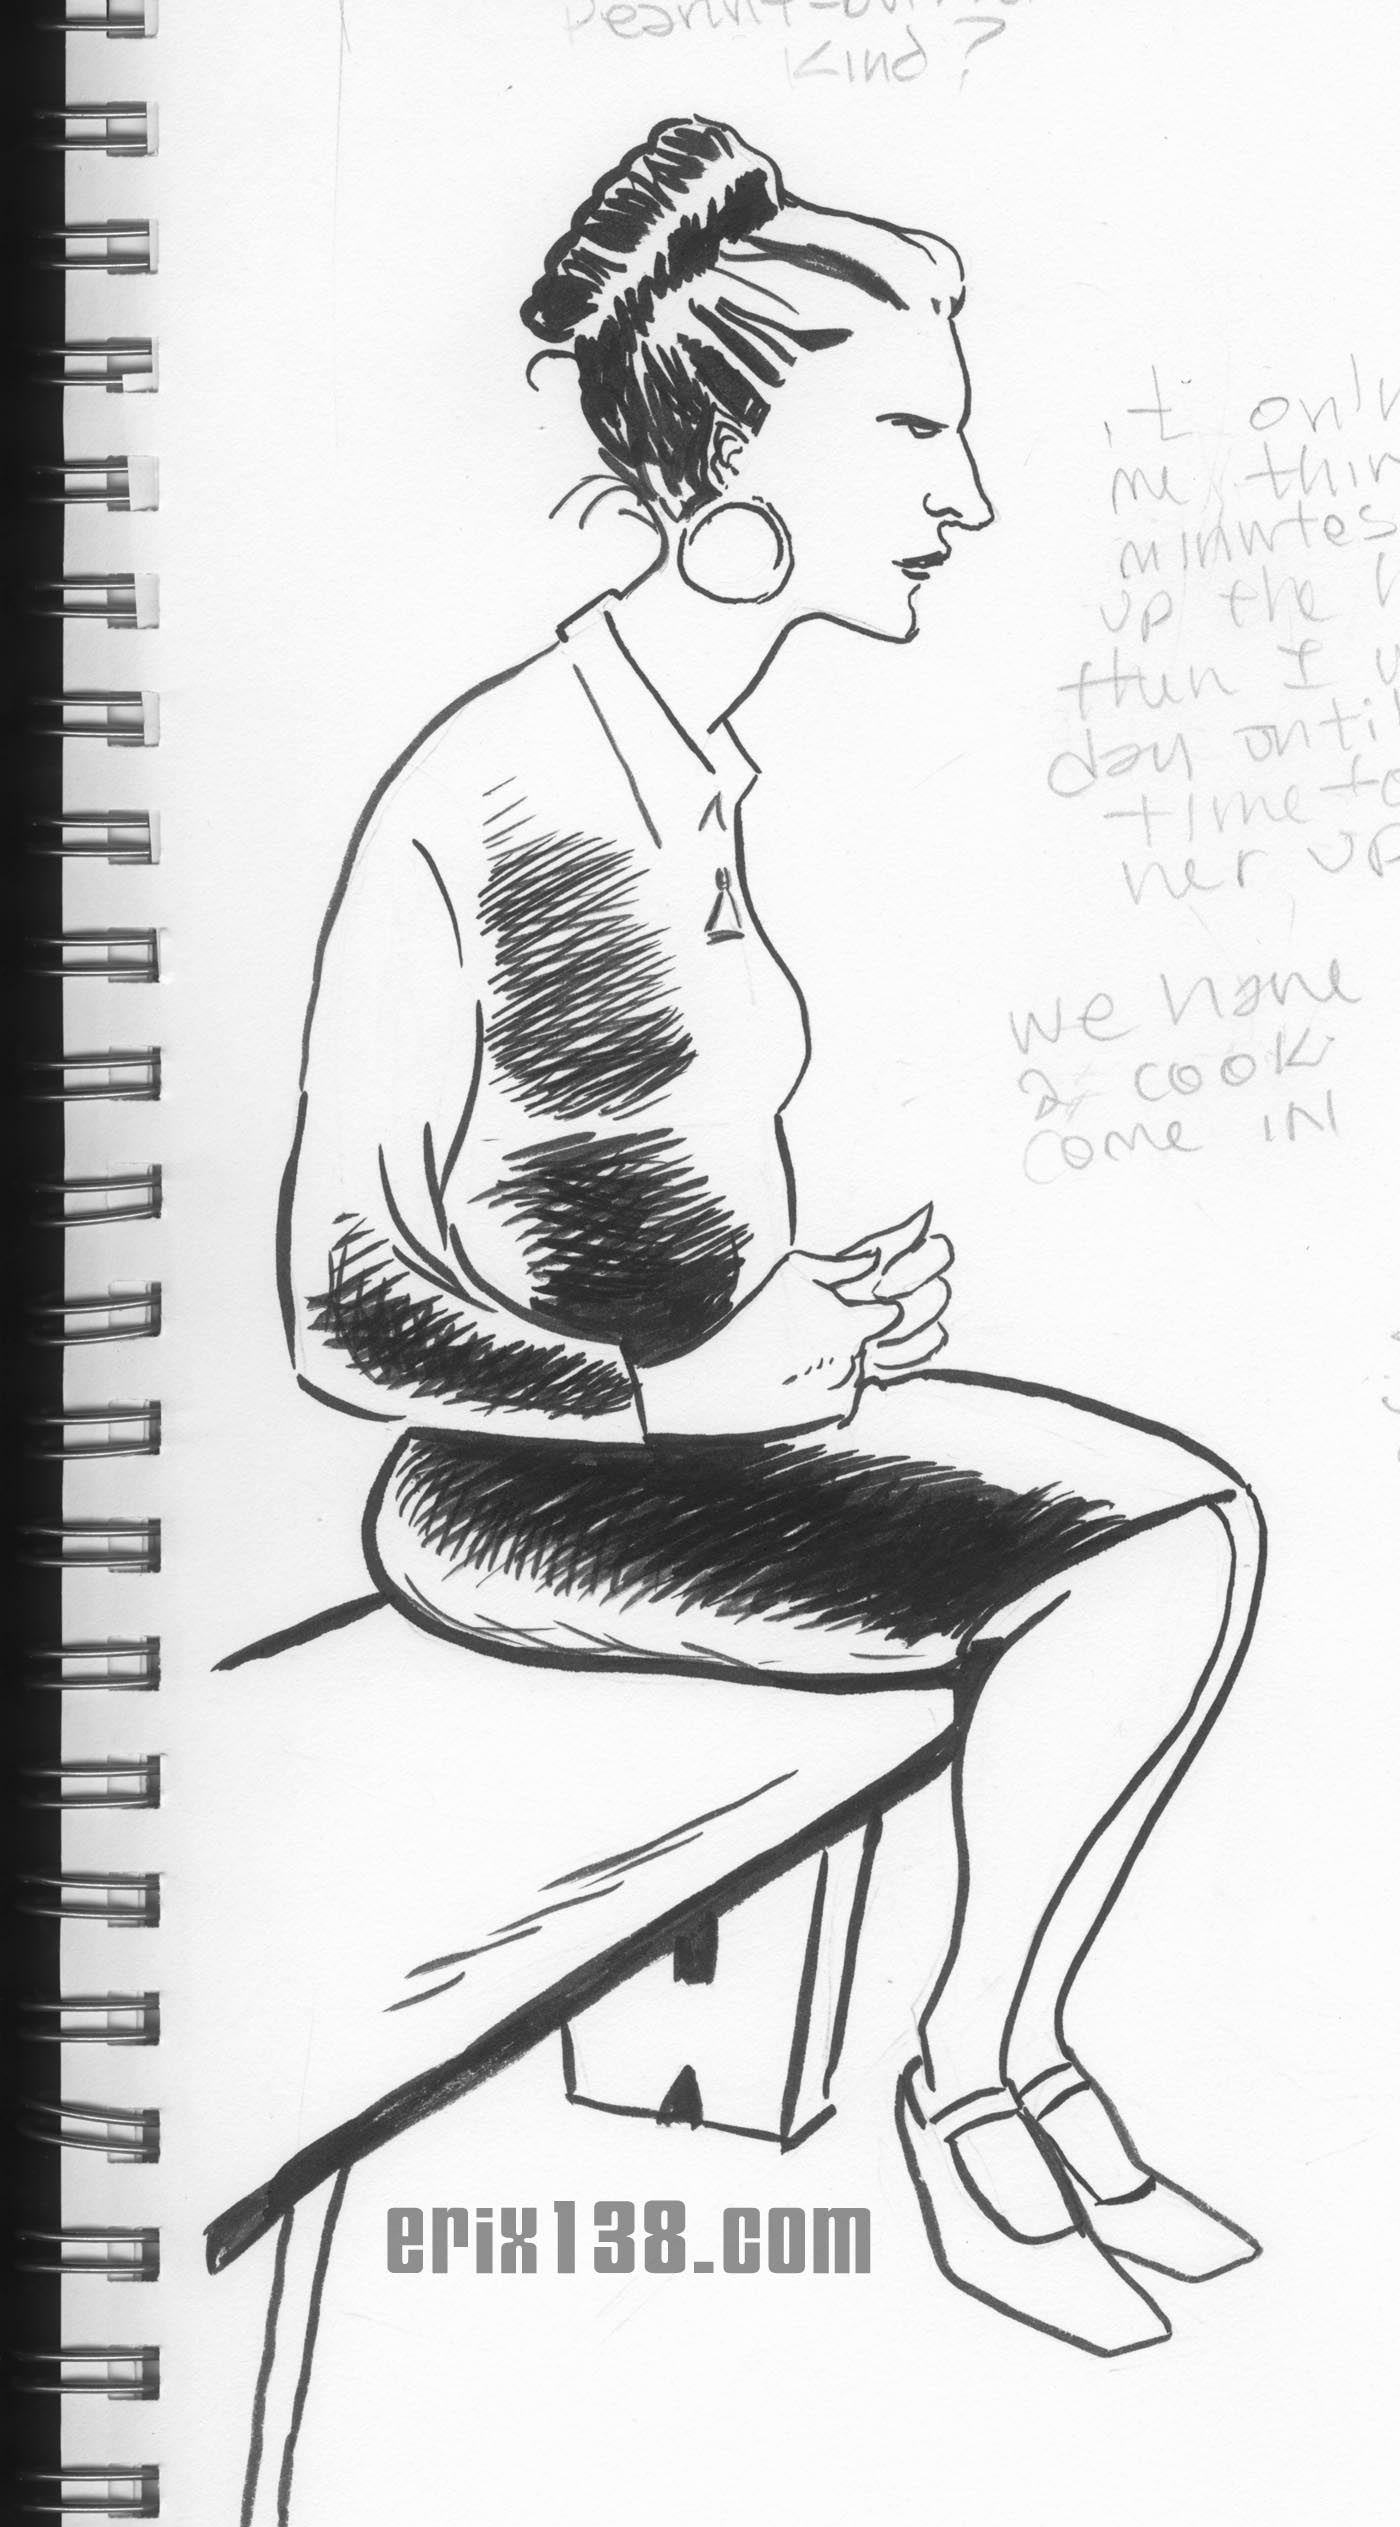 kind?
it on
me thir
minutes
up the h
then I u
day until
time to
her up
we have
2 cook
come IN
erix138.com